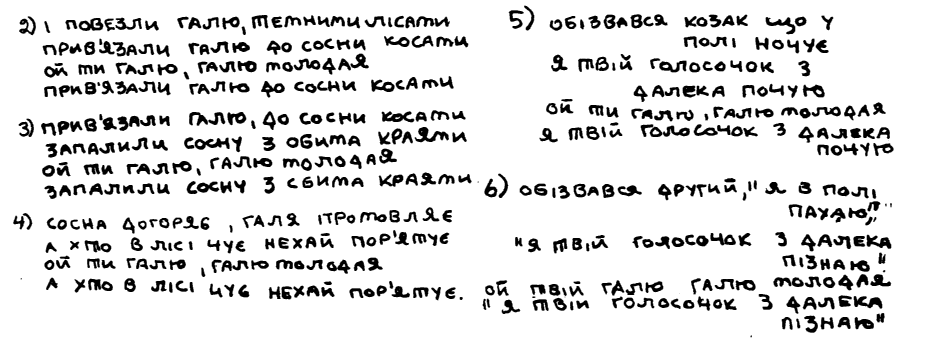 2) І ПОВЕЗЛИ ГАЛЮ, ТЕМНИМИ ЛІСАМИ
ПРИВ'ЯЗАЛИ ГАЛЮ ДО СОСНИ КОСАМИ
ОЙ ТИ ГАЛЮ, ГАЛЮ МОЛОДАЯ
ПРИВ'ЯЗАЛИ ГАЛЮ ДО СОСНИ КОСАМИ
3) ПРИВ'ЯЗАЛИ ГАЛЮ, ДО СОСНИ КОСАМИ
ЗАПАЛИЛИ СОСНУ З ОБИМА КРАЯМИ
ОЙ ТИ ГАЛЮ, ГАЛЮ МОЛОДАЯ
ЗАПАЛИЛИ СОСНУ З ОБИМА КРАЯМИ.
4) СОСНА ДОГОРЯЄ, ГАЛЯ ПРОМОВЛЯЄ
А ХТО В ЛІСІ ЧУЄ НЕХАЙ ПОР'ЯТУЄ
ОЙ ТИ ГАЛЮ, ГАЛЮ МОЛОДАЯ
А ХТО В ЛІСІ ЧУЄ НЕХАЙ ПОР'ЯТУЄ.
5) ОБІЗВАВСЯ КОЗАК ЩО У
ПОЛІ НОЧУЄ
Я ТВІЙ ГОЛОСОЧОК З
ДАЛЕКА ПОЧУЮ
ОЙ ТИ ГАЛЮ, ГАЛЮ МОЛОДАЯ
Я ТВІЙ ГОЛОСОЧОК З ДАЛЕКА
ПОЧУЮ
6) ОБІЗВАВСЯ ДРУГИЙ, "Я В ПОЛІ
"Я ТВІЙ ГОЛОСОЧОК З ДАЛЕКА
ПІЗНАЮ".
ОЙ ТВІЙ ГАЛЮ ГАЛЮ МОЛОДАЯ
"Я ТВІЙ ГОЛОСОЧОК З ДАЛЕКА
ПІЗНАЮ"